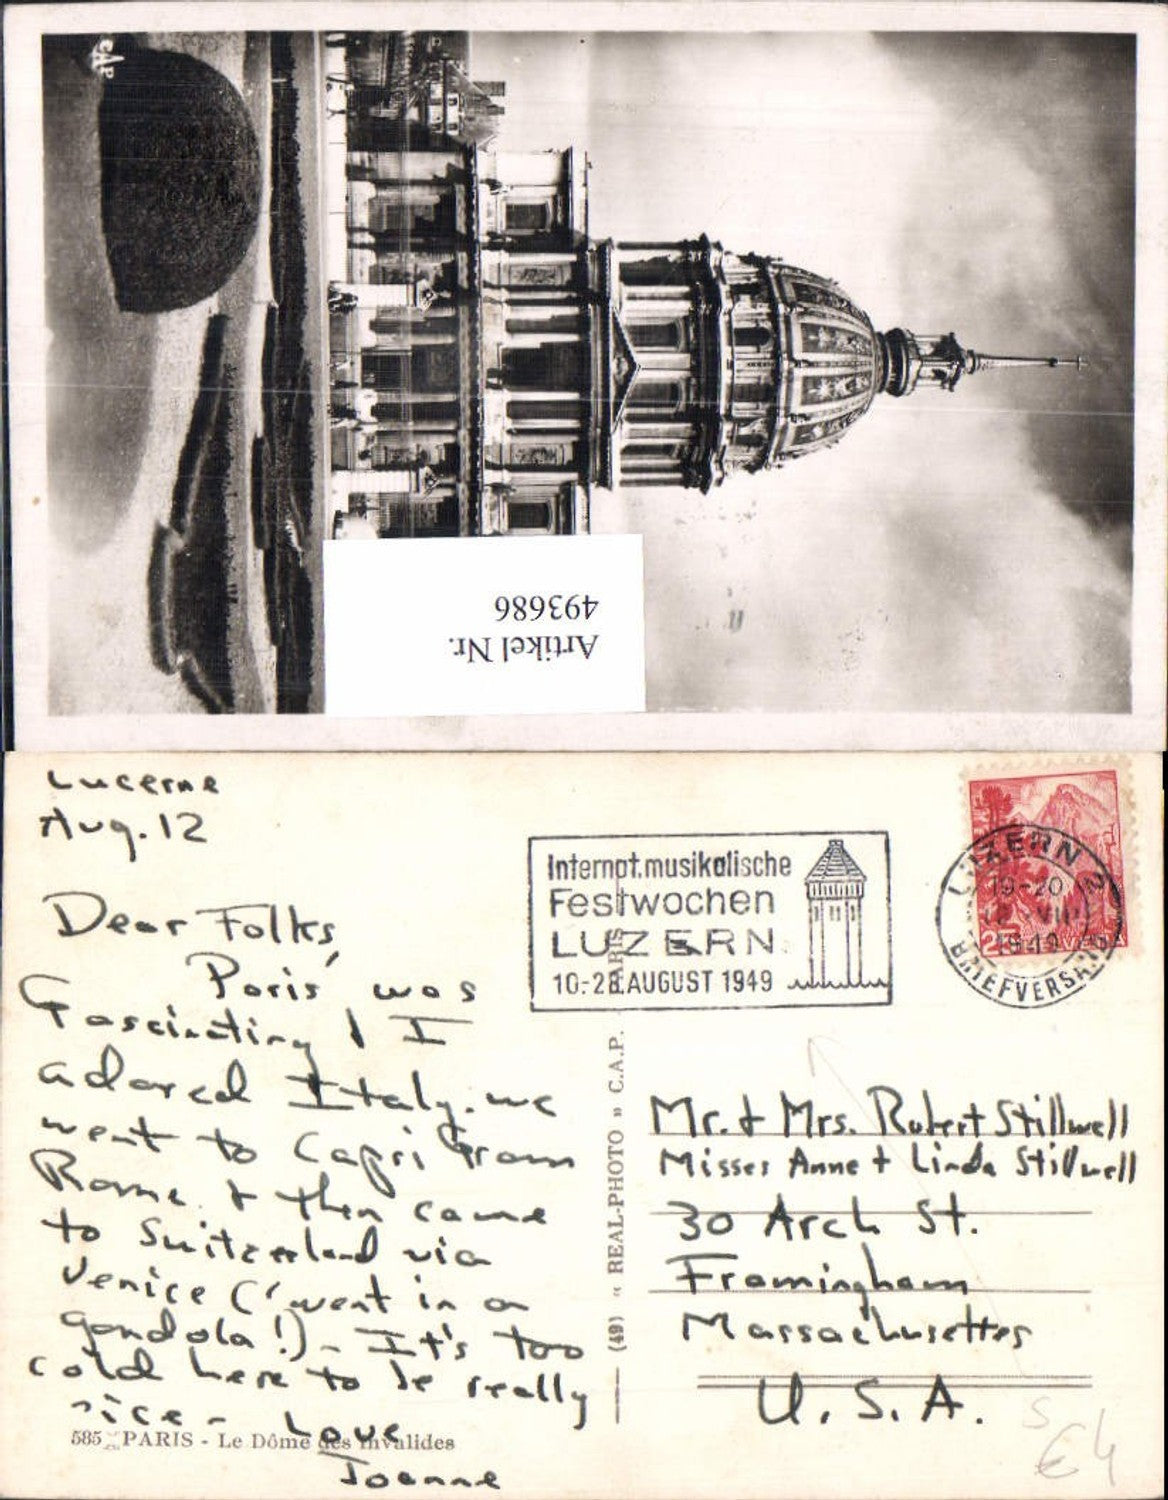 CAP
Artikel Nr.
493686
Lucerne
Aug. 12
Dear Folks,
Paris was
Fascinating & I
adored Italy. we
went to Capri from
Rome & then came
to Switzerland via
Venice (went in a
gondola!) - It's too
cold here to be really
nice - Love
Joanne
585 PARIS - Le Dôme des Invalides
(49) « REAL-PHOTO » C.A.P. PARIS
Internat. musikalische
Festwochen
LUZERN
10.-28. AUGUST 1949
LUZERN 2
19-20
1949
BRIEFVERSAND
Mr. & Mrs. Robert Stillwell
Misses Anne & Linda Stillwell
30 Arch St.
Framingham
Massachusettes
U.S.A.
S
€4